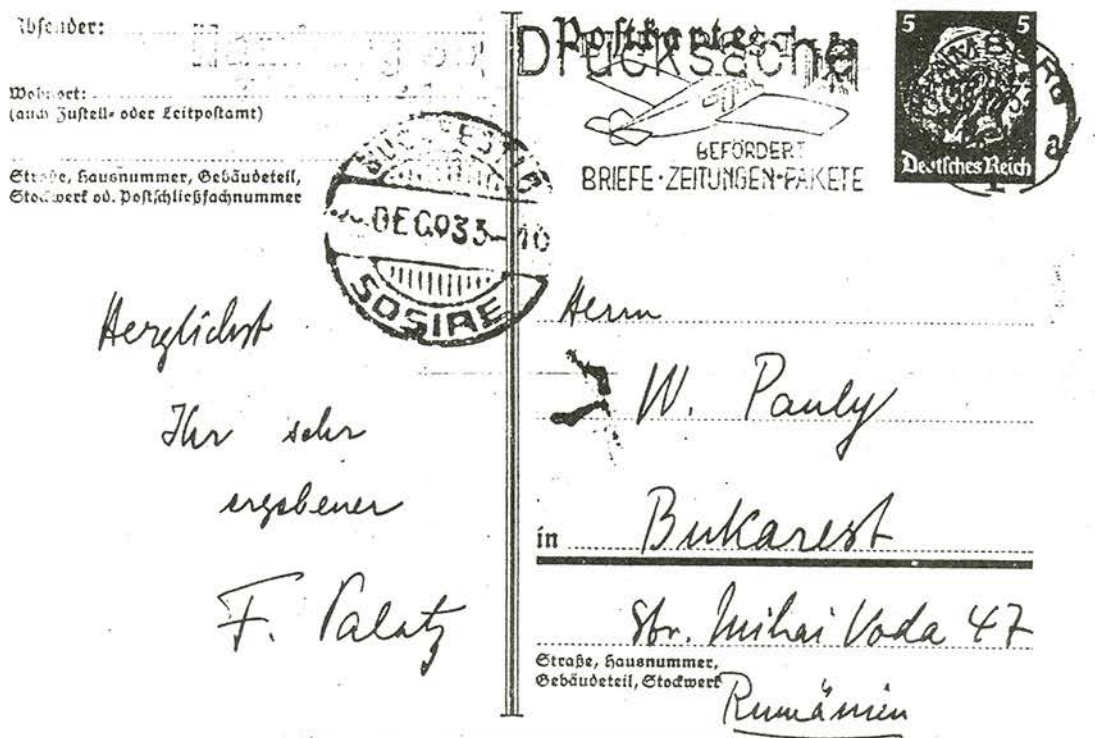 Absender:
Wohnort:
(auch Zustell- oder Leitpostamt)
Straße, Hausnummer, Gebäudeteil,
Stockwerk od. Postschließfachnummer
Herzlichst
Ihr sehr
ergebener
F. Palatz
SOSIRE
Postkarte
Drucksache
BEFÖRDERT
BRIEFE·ZEITUNGEN·PAKETE
5 5
Deutsches Reich
Herrn
W. Pauly
in Bukarest
Str. Mihai Voda 47
Straße, Hausnummer,
Gebäudeteil, Stockwerk
Rumänien